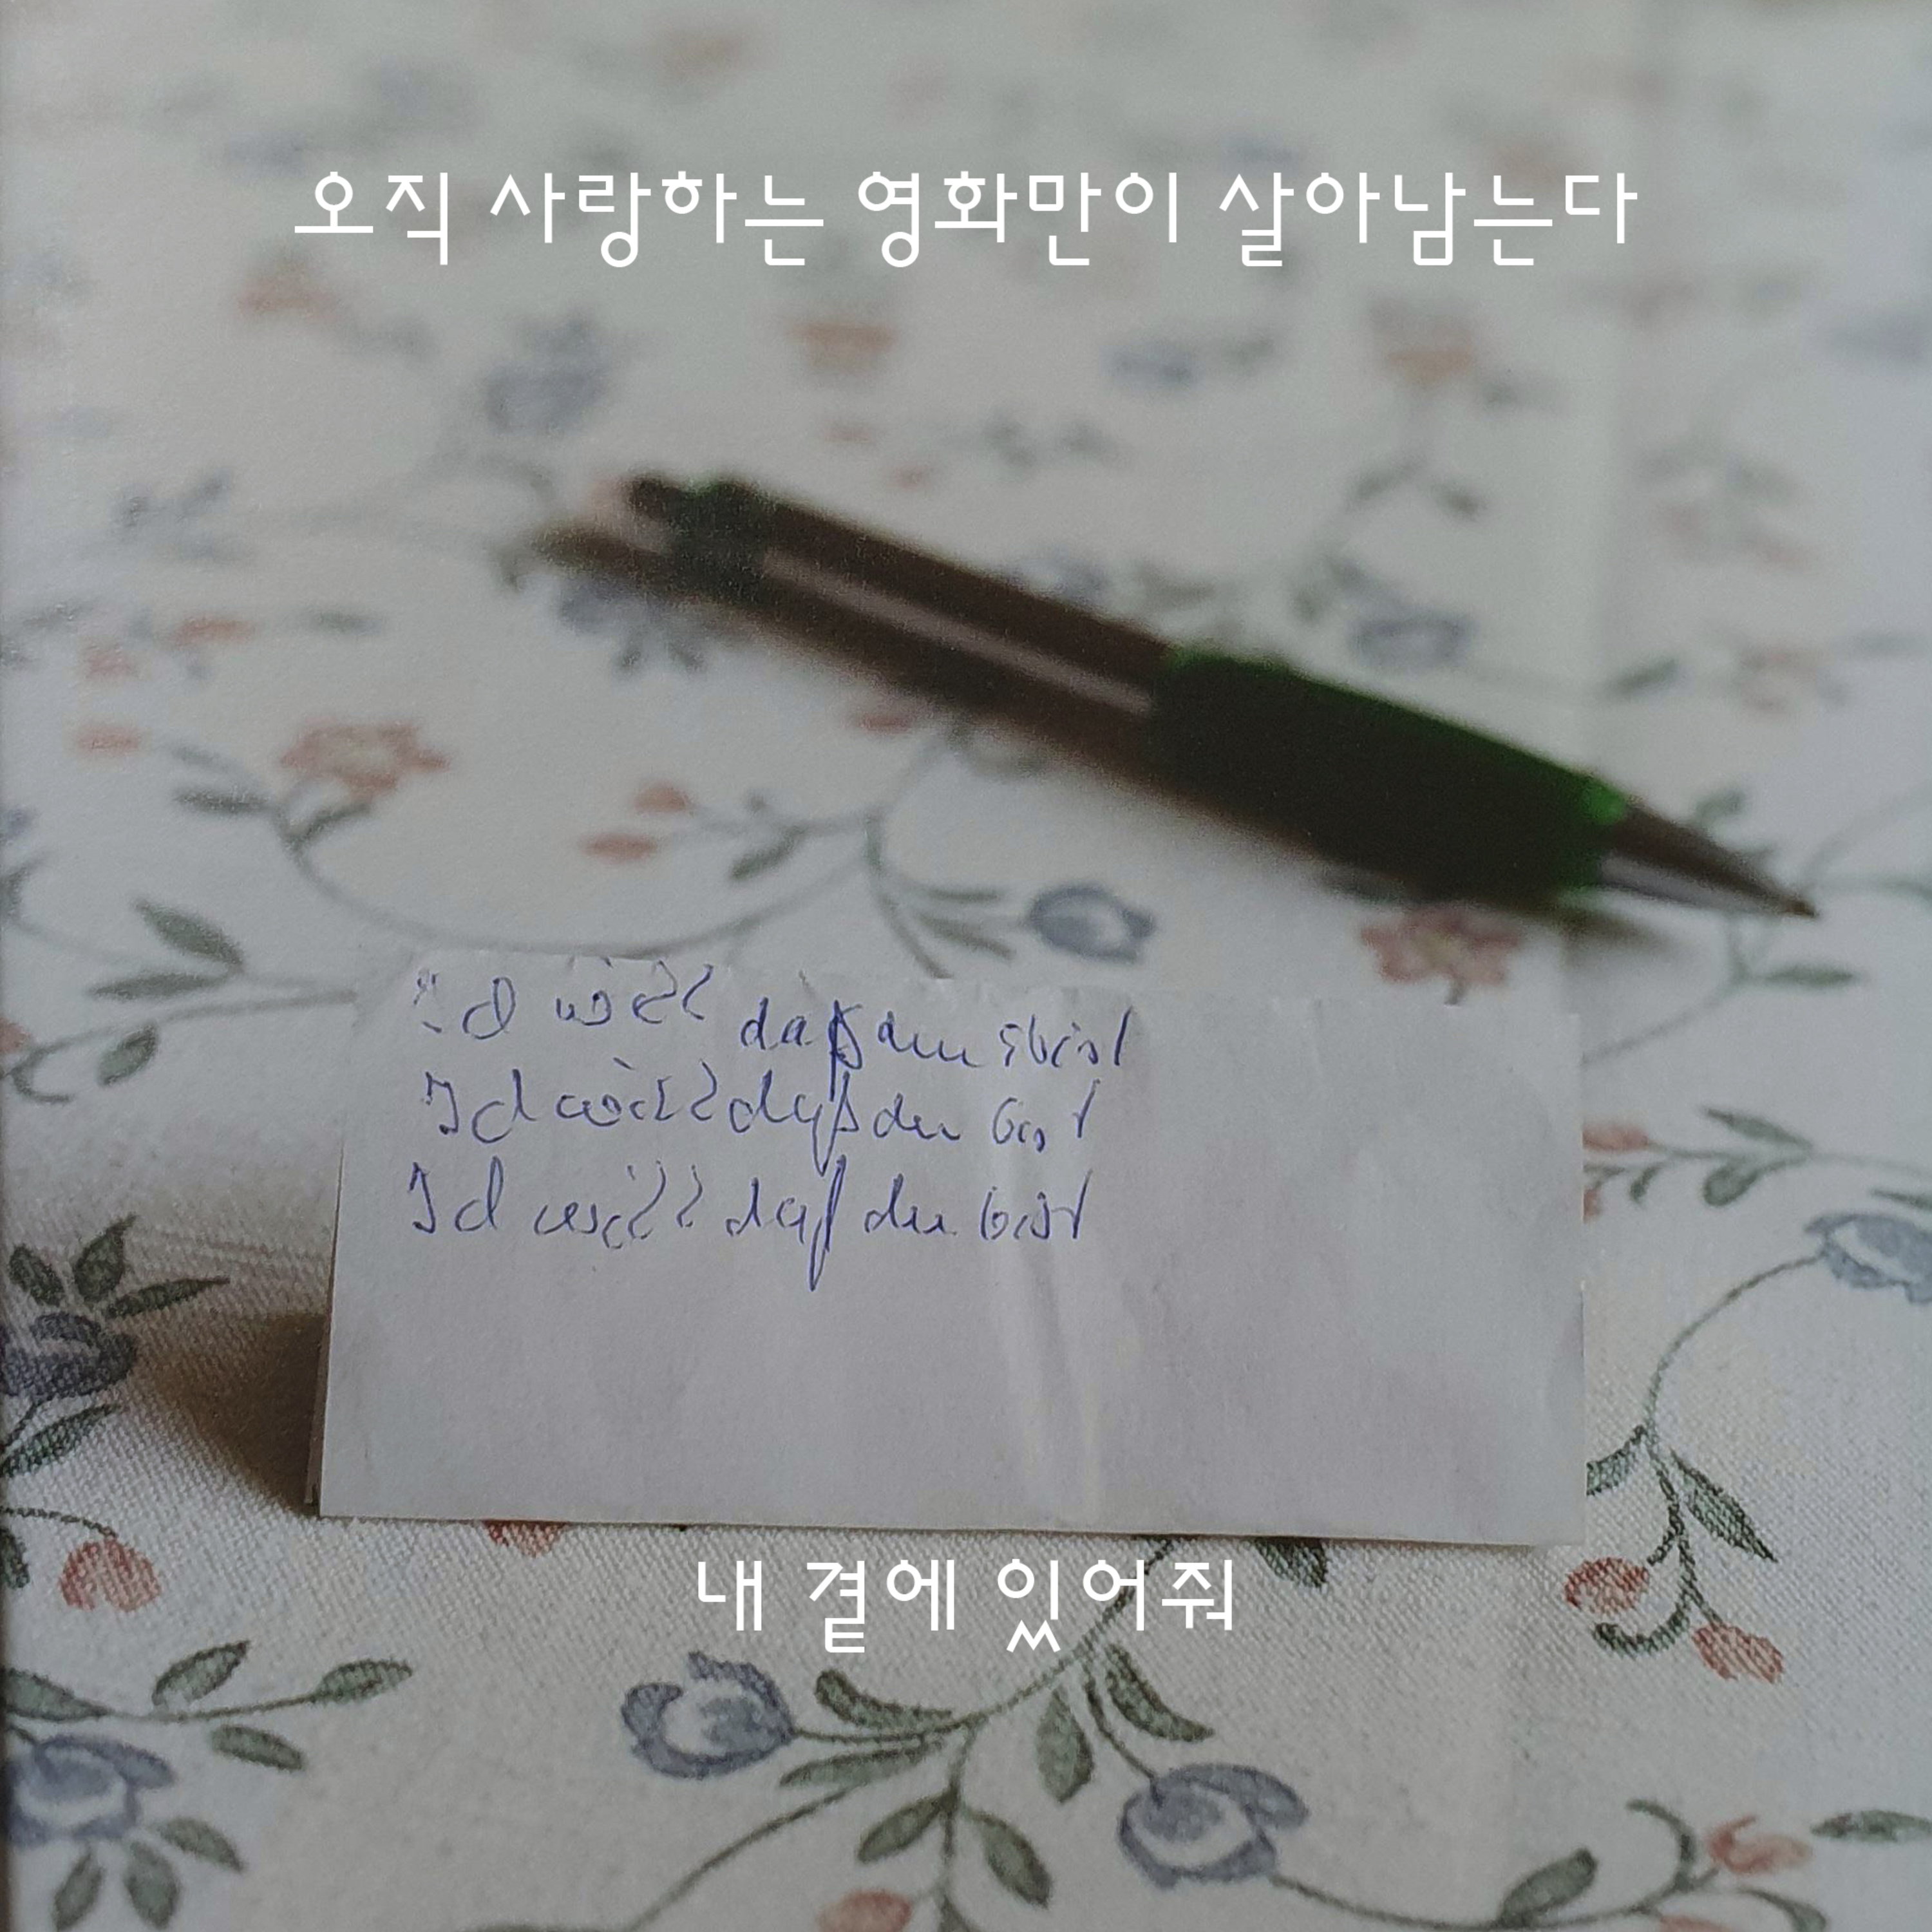 오직 사랑하는 영화만이 살아남는다
Ich will daß du bist
Ich will daß du bist
Ich will daß du bist
내 곁에 있어줘